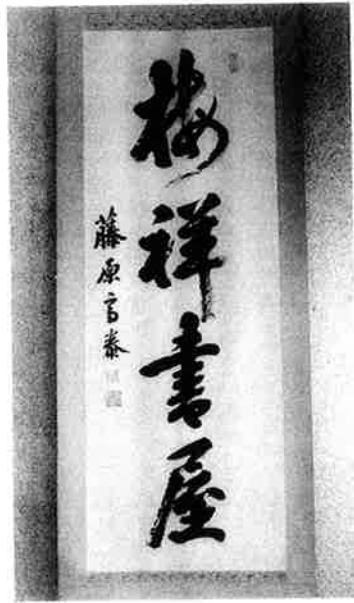 梅祥書屋
藤原高泰